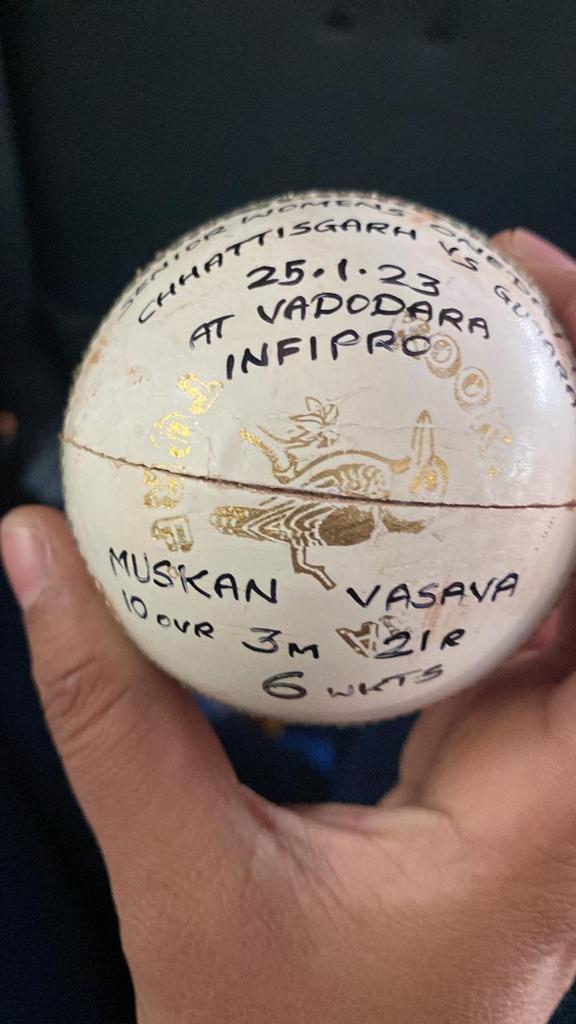 SENIOR WOMENS ONEDAY
CHHATTISGARH VS GUJARAT
25.1.23
AT VADODARA
INFIPRO
MUSKAN VASAVA
10 OVR 3M 21R
6 WKTS